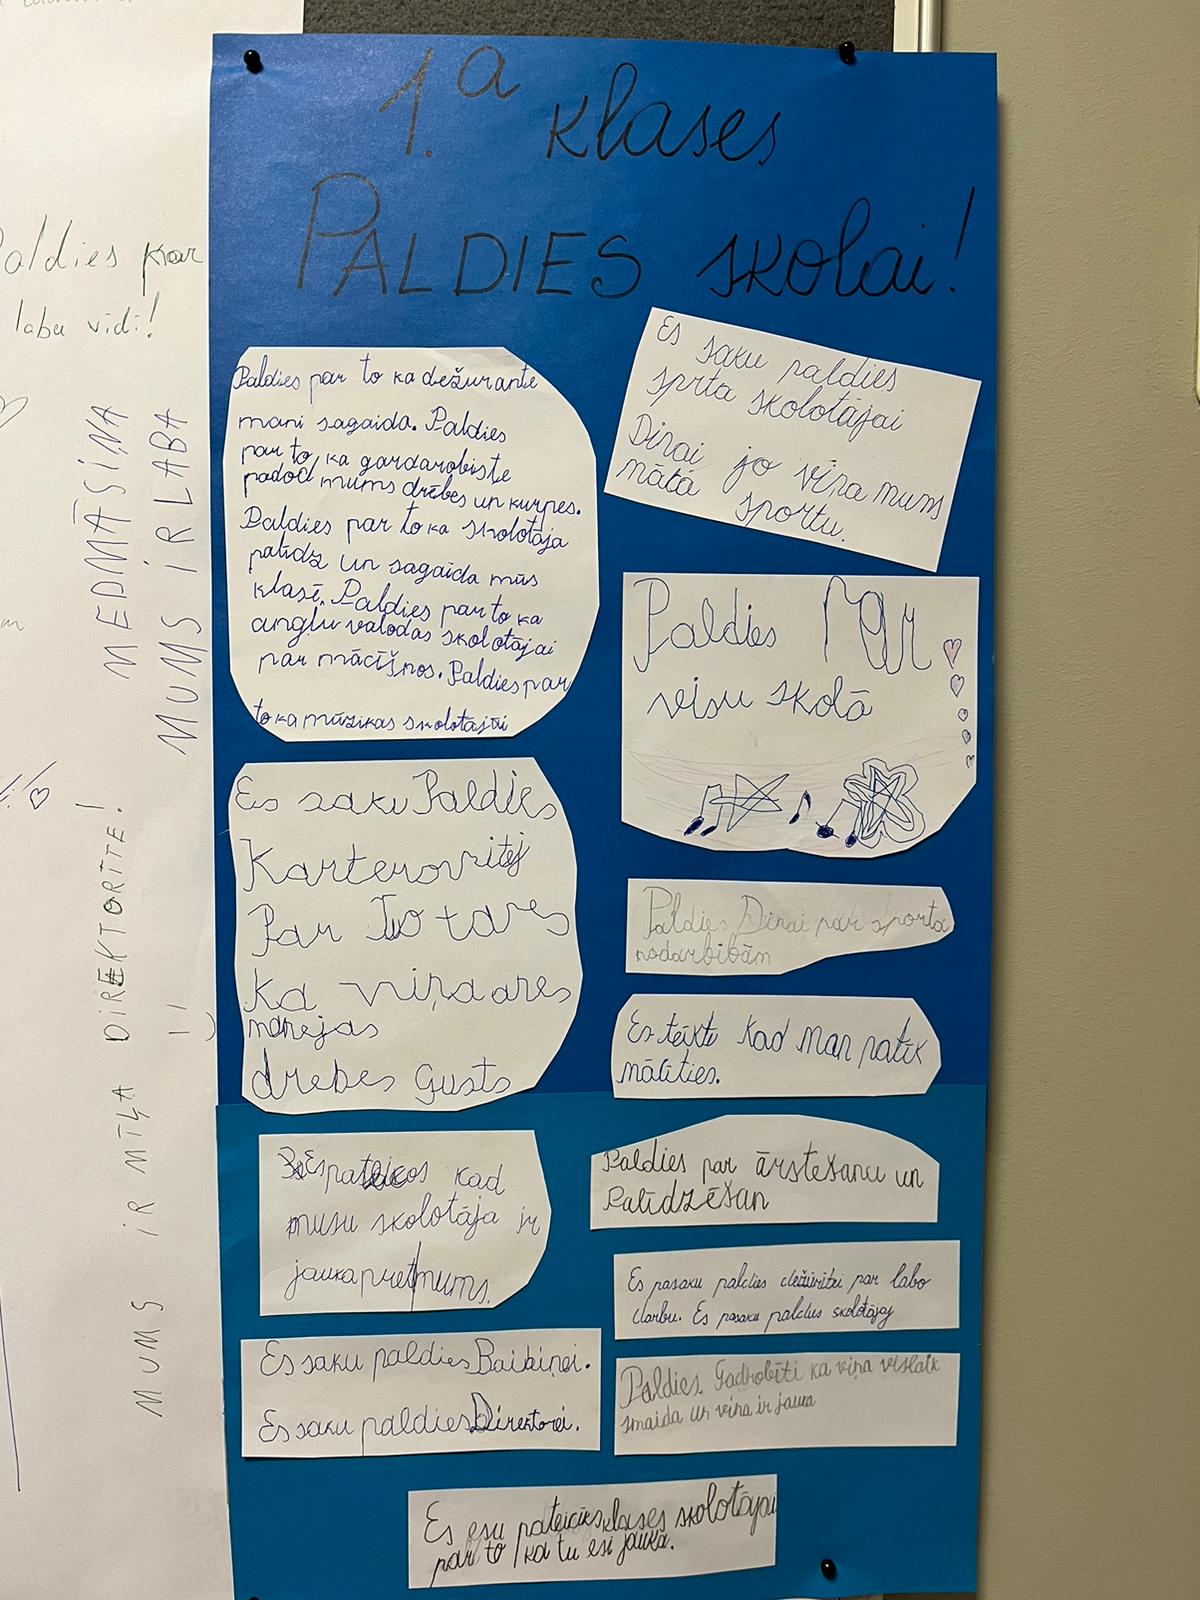 1.a klases
PALDIES skolai!
Paldies par to ka dežurante
mani sagaida. Paldies
par to, ka gardarobiste
padod mums drēbes un kurpes.
Paldies par to ka skolotāja
palīdz un sagaida mūs
klasē. Paldies par to ka
angļu valodas skolotājai
par mācīšnos. Paldies par
to ka mūzikas skolotājai
Es saku paldies
sprta skolotājai
Dinai jo viņa mums
māta sportu.
Paldies Par
visu skolā
Es saku Paldies
Par To
ka viņa ares
drebes Gusts
Paldies Dinai par sporta
nodarbibām
Es teiktu kad man patīk
mālities.
kad
musu skolotāja ir
jauka pret mums.
Paldies par ārstešanu un
Palīdzēšan
Es pasaku paldies dežūritei par labo
darbu. Es pasaku paldies skolotājaj
Es saku paldies Baibiņei.
Es saku paldies Direktorei.
Paldies. Gadrobīti ka viņa vislaik
smaida un viņa ir jauka
Es esu pateicīks klases skolotājai
par to ka tu esi jauka.
Paldies par
labu vidi!
MEDMĀSIŅA
MUMS iR LABA
MUMS iR MĪĻA DiREKTORĪTE!